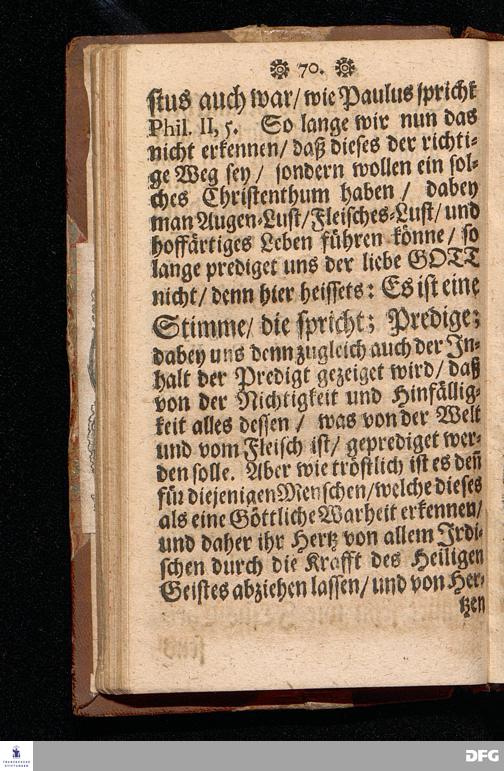 70.
stus auch war/ wie Paulus spricht
Phil. II, 5. So lange wir nun das
nicht erkennen/ daß dieses der richti-
ge Weg sey/ sondern wollen ein sol-
ches Christenthum haben/ dabey
man Augen-Lust/ Fleisches-Lust/ und
hoffärtiges Leben führen könne/ so
lange prediget uns der liebe GOTT
nicht/ denn hier heissets: Es ist eine
Stimme/ die spricht; Predige;
dabey uns denn zugleich auch der In-
halt der Predigt gezeiget wird/ daß
von der Nichtigkeit und Hinfällig-
keit alles dessen/ was von der Welt
und vom Fleisch ist/ geprediget wer-
den solle. Aber wie tröstlich ist es deñ
für diejenigen Menschen/ welche dieses
als eine Göttliche Warheit erkennen/
und daher ihr Hertz von allem Irdi-
schen durch die Krafft des Heiligen
Geistes abziehen lassen/ und von Her-
tzen
FRANCKESCHE
STIFTUNGEN
DFG